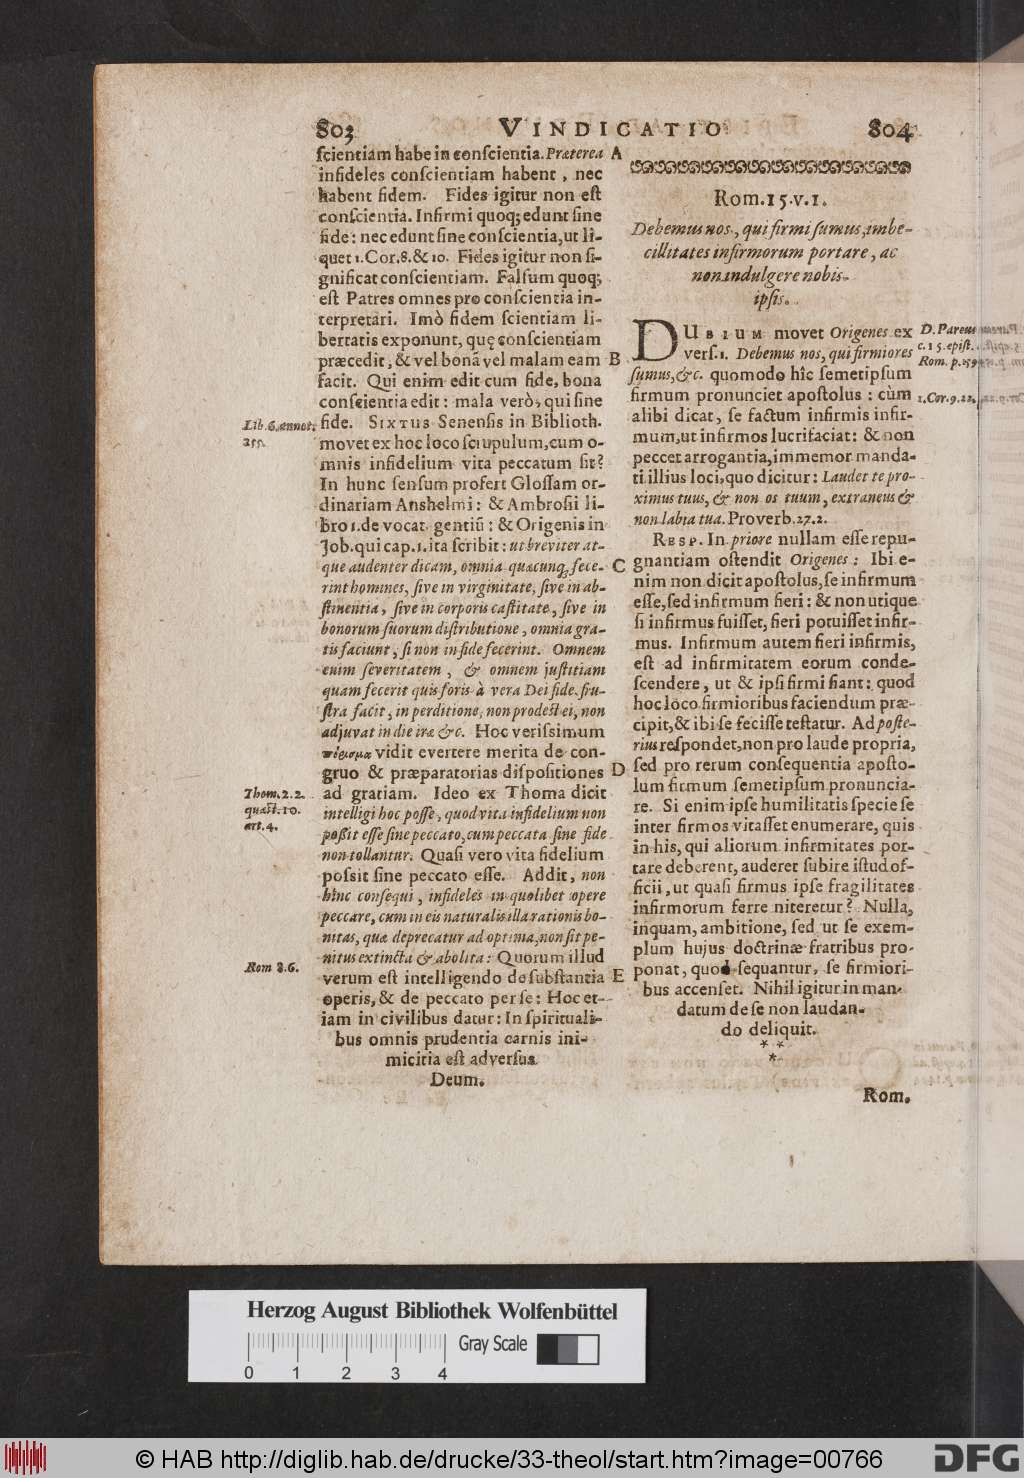 803
VINDICATIO
804
scientiam habe in conscientia. Præterea A
infideles conscientiam habent, nec
habent fidem. Fides igitur non est
conscientia. Infirmi quoq; edunt sine
fide: nec edunt sine conscientia, ut li-
quet 1. Cor. 8. & 10. Fides igitur non si-
gnificat conscientiam. Falsum quoq;
est Patres omnes pro conscientia in-
terpretari. Imò fidem scientiam li-
bertatis exponunt, quę conscientiam
præcedit, & vel bonã vel malam eam B
facit. Qui enim edit cum fide, bona
conscientia edit: mala verò, qui sine
Lib. 6. annot. fide. SIXTUS Senensis in Biblioth.
255. movet ex hoc loco scrupulum, cum o-
mnis infidelium vita peccatum sit?
In hunc sensum profert Glossam or-
dinariam Anshelmi: & Ambrosii li-
bro 1. de vocat. gentiũ: & Origenis in
Job. qui cap. 1. ita scribit: ut breviter at-
que audenter dicam, omnia quæcunq; fece- C
rint homines, sive in virginitate, sive in ab-
stinentia, sive in corporis castitate, sive in
bonorum suorum distributione, omnia gra-
tis faciunt, si non in fide fecerint. Omnem
enim severitatem, & omnem justitiam
quam fecerit quis foris à vera Dei fide, fru-
stra facit, in perditione, non prodest ei, non
adjuvat in die iræ &c. Hoc verissimum
vidit evertere merita de con-
gruo & præparatorias dispositiones D
Thom. 2. 2. ad gratiam. Ideo ex Thoma dicit
quæst. 10. intelligi hoc posse, quod vita infidelium non
art. 4. possit esse sine peccato, cum peccata sine fide
non tollantur. Quasi vero vita fidelium
possit sine peccato esse. Addit, non
hinc consequi, infideles in quolibet opere
peccare, cum in eis naturalis illa rationis bo-
nitas, quæ deprecatur ad optima, non sit pe-
nitus extincta & abolita: Quorum illud
Rom 8. 6. verum est intelligendo de substantia E
operis, & de peccato per se: Hoc et-
iam in civilibus datur: In spirituali-
bus omnis prudentia carnis ini-
micitia est adversus
Deum.
Rom. 15. v. 1.
Debemus nos, qui firmi sumus, imbe-
cillitates infirmorum portare, ac
non indulgere nobis-
ipsis.
DUBIUM movet Origenes ex D. Pareus
vers. 1. Debemus nos, qui firmiores c. 15. epist.
sumus, &c. quomodo hîc semetipsum Rom. p. 1594
firmum pronunciet apostolus: cùm 1. Cor. 9. 22.
alibi dicat, se factum infirmis infir-
mum, ut infirmos lucrifaciat: & non
peccet arrogantia, immemor manda-
ti illius loci, quo dicitur: Laudet te pro-
ximus tuus, & non os tuum, extraneus &
non labia tua. Proverb. 27. 2.
RESP. In priore nullam esse repu-
gnantiam ostendit Origenes: Ibi e-
nim non dicit apostolus, se infirmum
esse, sed infirmum fieri: & non utique
si infirmus fuisset, fieri potuisset infir-
mus. Infirmum autem fieri infirmis,
est ad infirmitatem eorum conde-
scendere, ut & ipsi firmi fiant: quod
hoc loco firmioribus faciendum præ-
cipit, & ibi se fecisse testatur. Ad poste-
rius respondet, non pro laude propria,
sed pro rerum consequentia aposto-
lum firmum semetipsum pronuncia-
re. Si enim ipse humilitatis specie se
inter firmos vitasset enumerare, quis
in his, qui aliorum infirmitates por-
tare deberent, auderet subire istud of-
ficii, ut quasi firmus ipse fragilitates
infirmorum ferre niteretur? Nulla,
inquam, ambitione, sed ut se exem-
plum hujus doctrinæ fratribus pro-
ponat, quod sequantur, se firmiori-
bus accenset. Nihil igitur in man-
datum de se non laudan-
do deliquit.
* *
*
Rom.
Herzog August Bibliothek Wolfenbüttel
Gray Scale
0 1 2 3 4
© HAB http://diglib.hab.de/drucke/33-theol/start.htm?image=00766
DFG